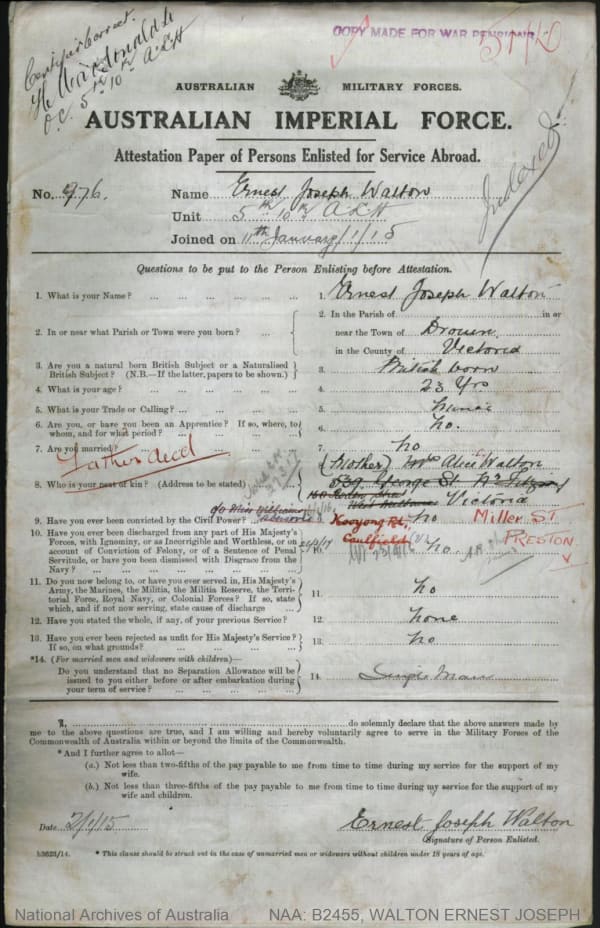 Certified correct.
O.C. 5th 10th ALH
COPY MADE FOR WAR PENSIONS
AUSTRALIAN MILITARY FORCES.
AUSTRALIAN IMPERIAL FORCE.
Attestation Paper of Persons Enlisted for Service Abroad.
Indexed
No. 976. Name Ernest Joseph Walton
Unit 5th 10th ALH
Joined on 11th January/1/15
Questions to be put to the Person Enlisting before Attestation.
1. What is your Name? ... ... ... ... ... 1. Ernest Joseph Walton
2. In or near what Parish or Town were you born? ... 2. In the Parish of ... in or
near the Town of Drouin
in the County of Victoria
3. Are you a natural born British Subject or a Naturalised British Subject? (N.B.—If the latter, papers to be shown.) 3. British born
4. What is your age? ... ... ... ... ... 4. 23 Yrs
5. What is your Trade or Calling? ... ... ... ... 5.
6. Are you, or have you been an Apprentice? If so, where, to whom, and for what period? ... ... ... 6. no.
7. Are you married? ... ... ... ... ... 7. no
Father dead
8. Who is your next of kin? (Address to be stated) 8. (Mother) Mrs Alice Walton
539 George St
Victoria
9. Have you ever been convicted by the Civil Power? ... 9. no
Kooyong Rd, Caulfield
Miller ST PRESTON
10. Have you ever been discharged from any part of His Majesty's Forces, with Ignominy, or as Incorrigible and Worthless, or on account of Conviction of Felony, or of a Sentence of Penal Servitude, or have you been dismissed with Disgrace from the Navy? ... ... ... ... 10. no.
11. Do you now belong to, or have you ever served in, His Majesty's Army, the Marines, the Militia, the Militia Reserve, the Territorial Force, Royal Navy, or Colonial Forces? If so, state which, and if not now serving, state cause of discharge ... 11. no
12. Have you stated the whole, if any, of your previous Service? 12. none
13. Have you ever been rejected as unfit for His Majesty's Service? If so, on what grounds? ... ... ... ... 13. no
*14. (For married men and widowers with children)—
Do you understand that no Separation Allowance will be issued to you either before or after embarkation during your term of service? ... ... ... ... 14. Single Man
I, ... do solemnly declare that the above answers made by
me to the above questions are true, and I am willing and hereby voluntarily agree to serve in the Military Forces of the
Commonwealth of Australia within or beyond the limits of the Commonwealth.
*And I further agree to allot—
(a.) Not less than two-fifths of the pay payable to me from time to time during my service for the support of my
wife.
(b.) Not less than three-fifths of the pay payable to me from time to time during my service for the support of my
wife and children.
Date 2/1/15 Ernest Joseph Walton
Signature of Person Enlisted.
* This clause should be struck out in the case of unmarried men or widowers without children under 18 years of age.
National Archives of Australia NAA: B2455, WALTON ERNEST JOSEPH